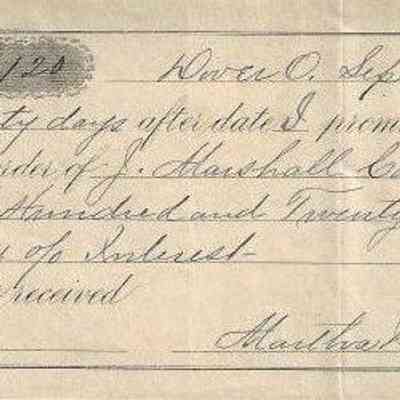 120 Dover O. Sep
ty days after date I prom
rder of J. Marshall Co
Hundred and Twenty
o/o Interest
received
Martha